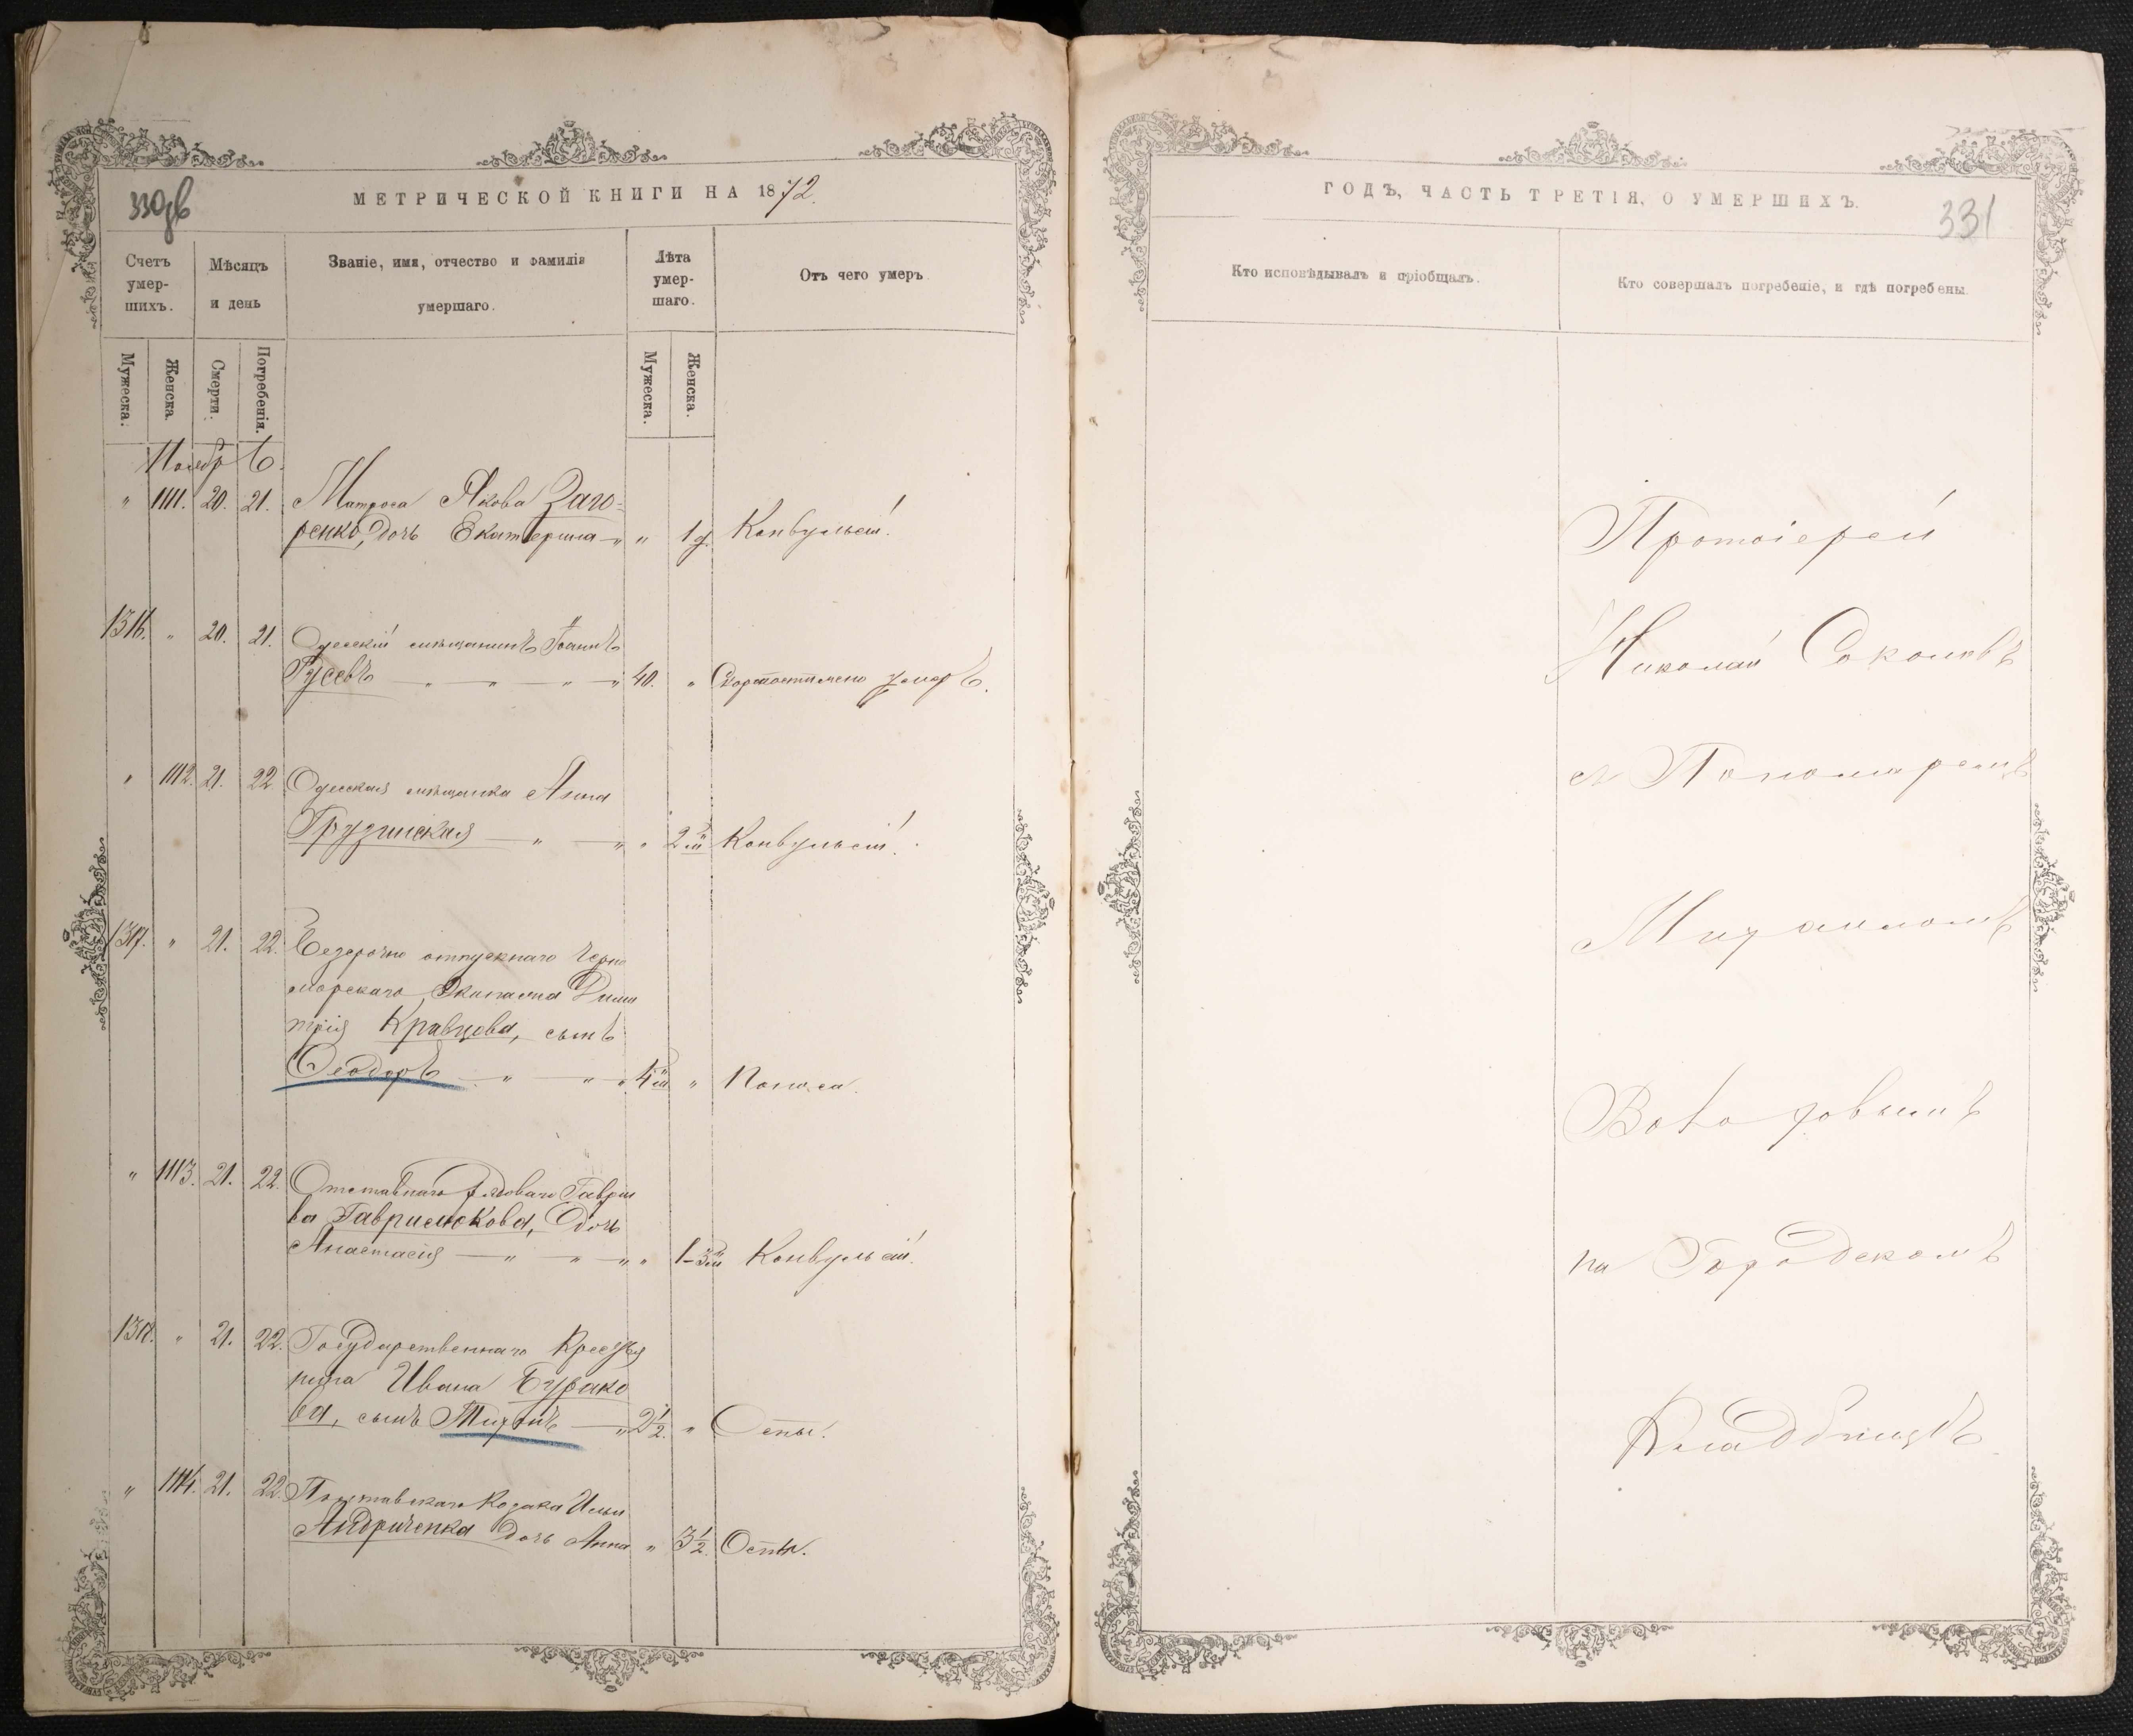 330зв
МЕТРИЧЕСКОЙ КНИГИ НА 1872.
Счетъ умер-шихъ.
Мѣсяцъ и день
Званіе, имя, отчество и фамилія умершаго.
Лѣта умер-шаго.
Отъ чего умеръ
Мужеска.
Женска.
Смерти.
Погребенія.
Мужеска.
Женска.
Ноябрь.
" 1111. 20. 21. Матроса Якова Заго-
ренко, дочь Екатерина " " 1 г. Конвульсій.
1316. " 20. 21. Одесскій мѣщанинъ Іоаннъ
Гусевъ " " " " 40. " Скоропостижно умеръ.
" 1112. 21. 22 Одесская мѣщанка Анна
Грузинская " " " " 2 м Конвульсій.
1317. " 21. 22. Безсрочно отпускнаго Черно
морскаго Экипажа Дими
трія Кравцова, сынъ
Ѳеодоръ " " " 4 м " Поноса.
" 1113. 21. 22. Отставнаго рядоваго Гаврии
ла Гаврилюкова, дочь
Анастасія " " " " 1-3 м Конвульсій.
1318. " 21. 22. Государственнаго Крестья
нина Ивана Бурако
ва, сынъ " 2 1/2. " Оспы.
" 1114. 21. 22. Полтавскаго Козака Ильи
Андриченка дочь Анна " 3 1/2. Оспы.
ГОДЪ, ЧАСТЬ ТРЕТІЯ, О УМЕРШИХЪ.
331
Кто исповѣдывалъ и пріобщалъ.
Кто совершалъ погребеніе, и гдѣ погребены.
Протоіерей
Николай Соколовъ
съ Пономаремъ
Михаиломъ
на Городскомъ
Кладбищѣ